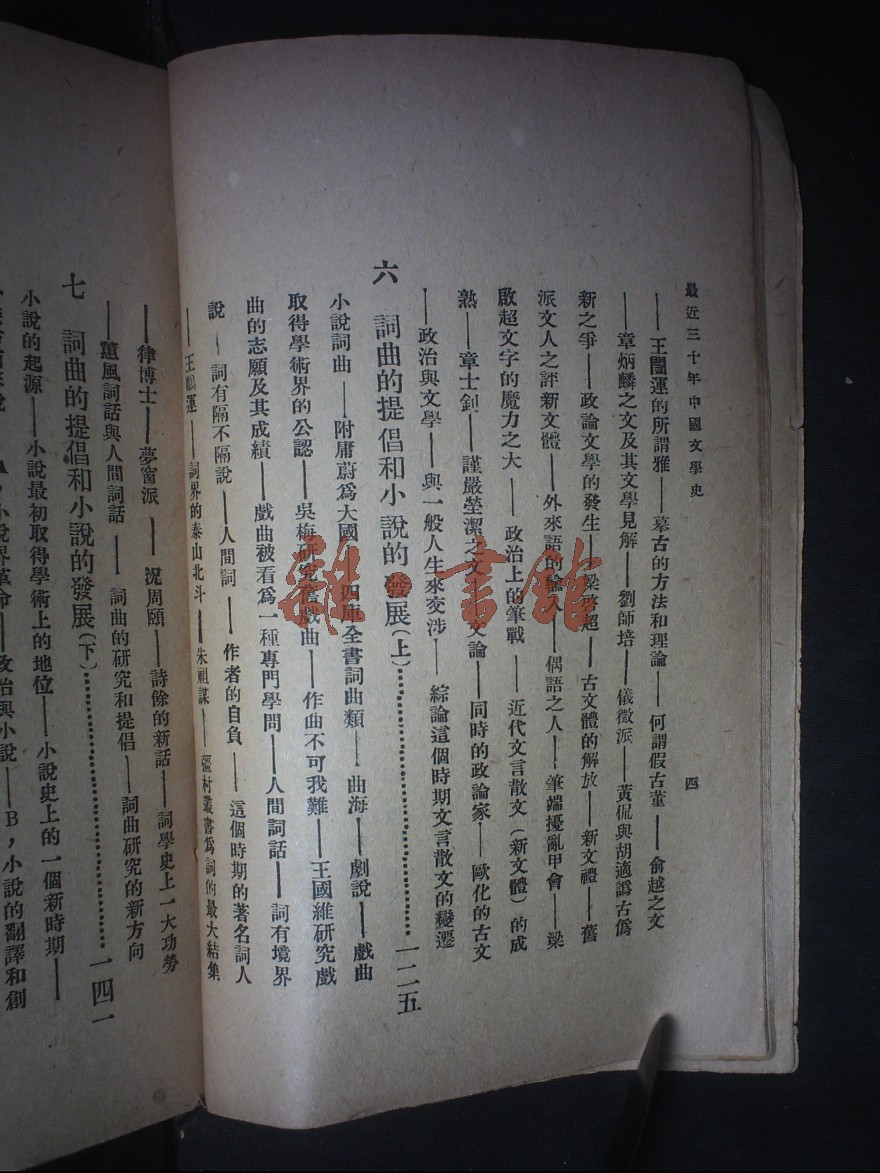 最近三十年中國文學史
四
——王闓運的所謂雅——摹古的方法和理論——何謂假古董——俞越之文
——章炳麟之文及其文學見解——劉師培——儀徵派——黃侃與胡適譌古僞
新之爭——政論文學的發生——梁啟超——古文體的解放——新文禮——舊
派文人之評新文體——外來語的輸入——偶語之人——筆端擾亂甲會——梁
啟超文字的魔力之大——政治上的筆戰——近代文言散文（新文體）的成
熟——章士釗——謹嚴瑩潔之文——文論——同時的政論家——歐化的古文
——政治與文學——與一般人生來交涉——綜論這個時期文言散文的變遷
六 詞曲的提倡和小說的發展(上)……一二五
小說詞曲——附庸蔚爲大國——四庫全書詞曲類——曲海——劇說——戲曲
取得學術界的公認——吳梅研究舊戲曲——作曲不可我難——王國維研究戲
曲的志願及其成績——戲曲被看爲一種專門學問——人間詞話——詞有境界
說——詞有隔不隔說——人間詞——作者的自負——這個時期的著名詞人
——王鵬運——詞界的泰山北斗——朱祖謀——彊村叢書爲詞的最大結集
——律博士——夢窗派——況周頤——詩餘的新話——詞學史上一大功勞
——蕙風詞話與人間詞話——詞曲的研究和提倡——詞曲研究的新方向
七 詞曲的提倡和小說的發展(下)……一四一
小說的起源——小說最初取得學術上的地位——小說史上的一個新時期——
小說界革命——政治與小說——B，小說的翻譯和創
雜·書館